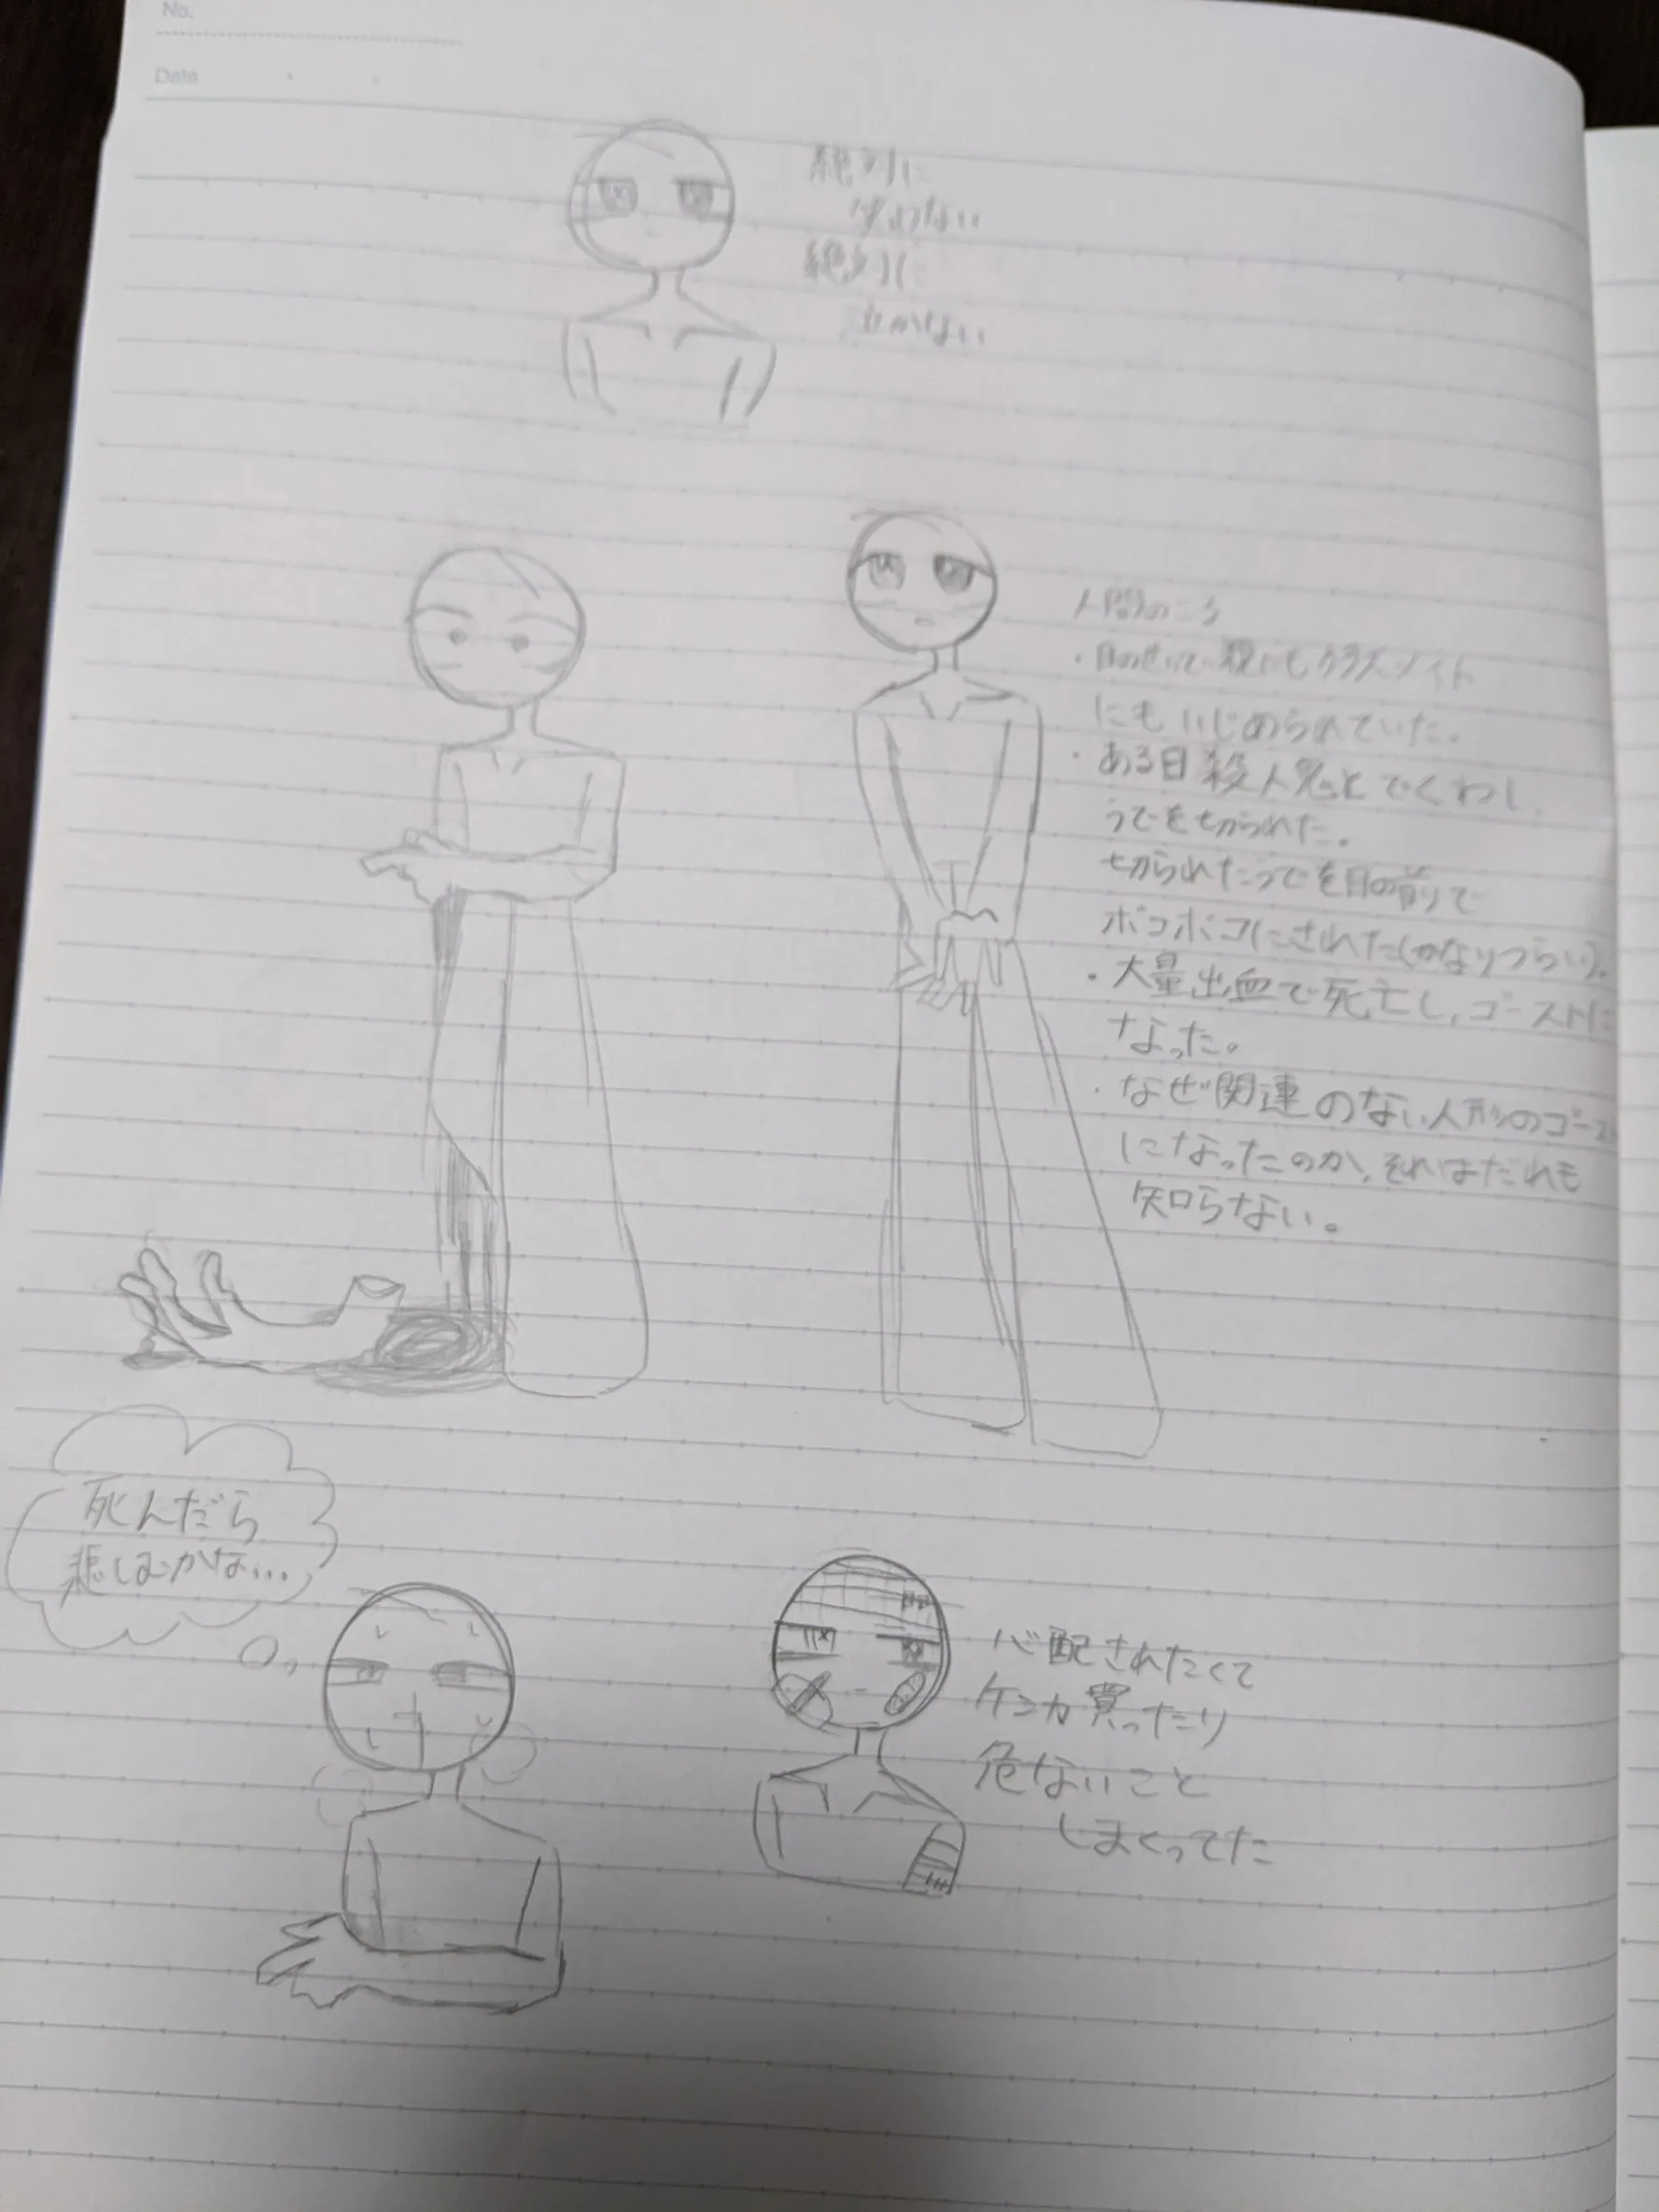 No.
Date
絶対に
絶対に
泣かない
人間のころ
・目のせいで親にもクラスメイト
にもいじめられていた。
・ある日殺人鬼とでくわし、
うでを切られた。
切られたうでを目の前で
ボコボコにされた(かなりつらい)。
・大量出血で死亡し、ゴーストに
なった。
・なぜ関連のない人形のゴースト
になったのか、それはだれも
知らない。
死んだら
悲しむかな…
心配されたくて
ケンカ買ったり
危ないこと
しまくってた